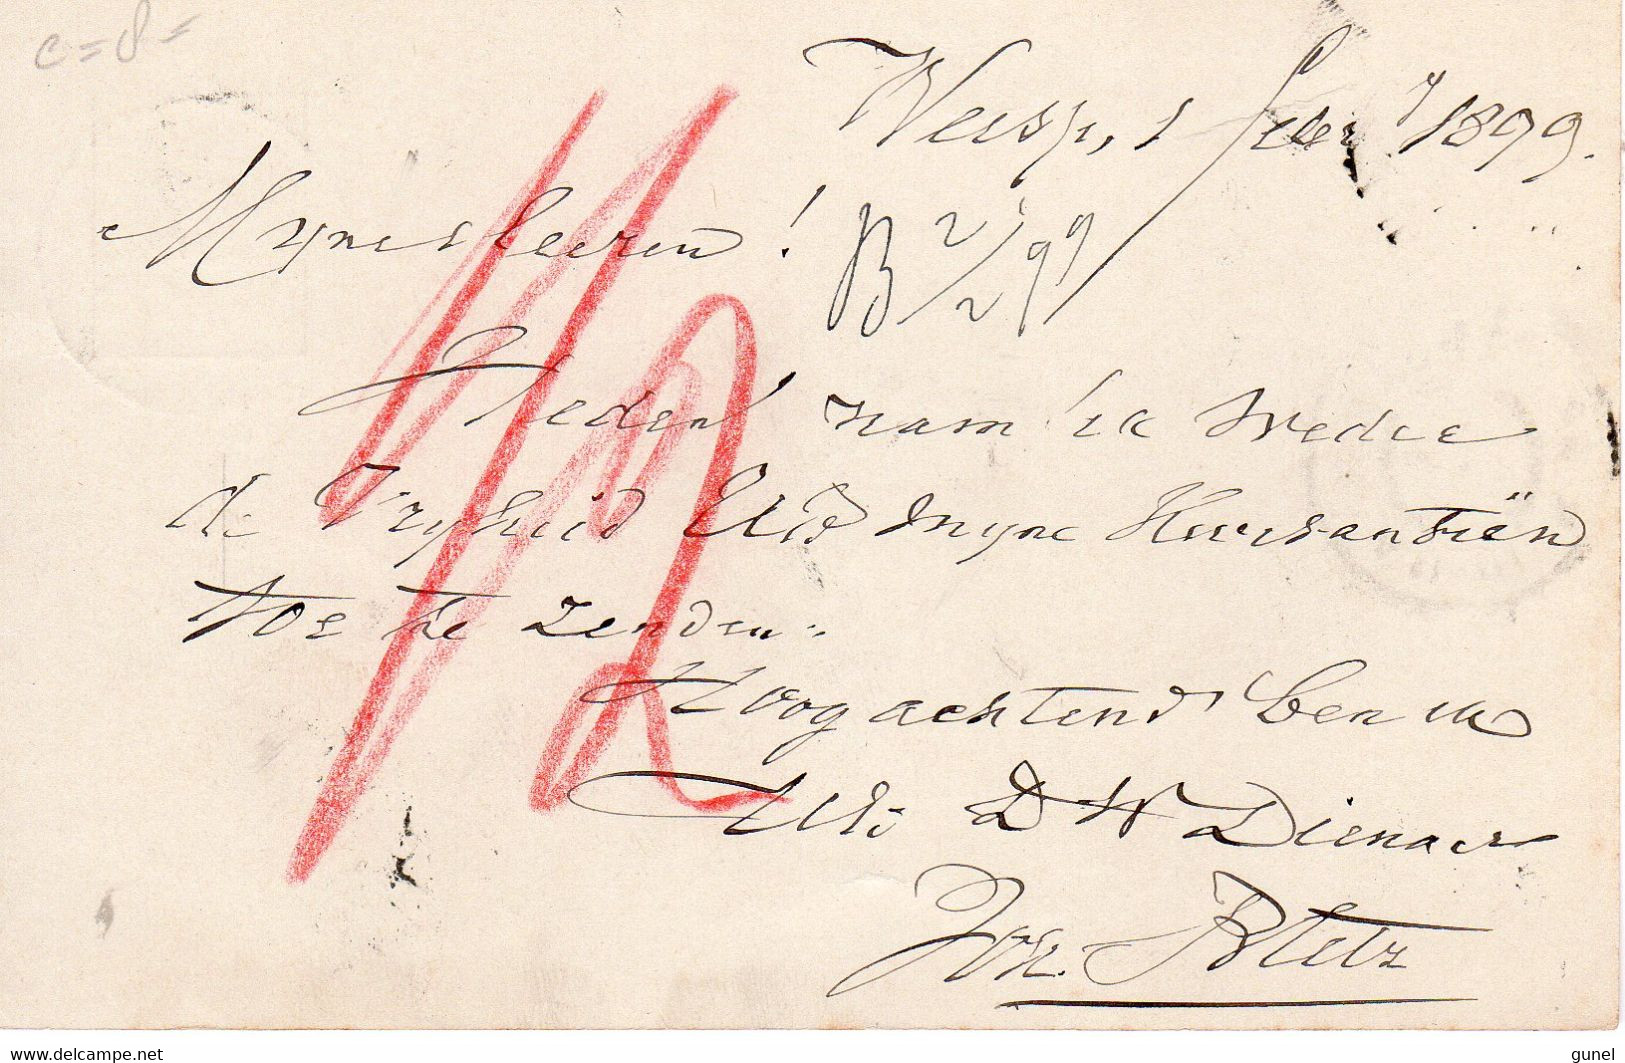 c = 8 =
Weesp, 1 Febr 1899.
Mijneheeren!
B 2/2 99
Heden nam ik wedee
de Vryheid UEd myne Kwitantiën
toe te zenden.
Hoogachtend ben ik
UEd D W Dienaar
Joh. Bletz
www.delcampe.net
gunel